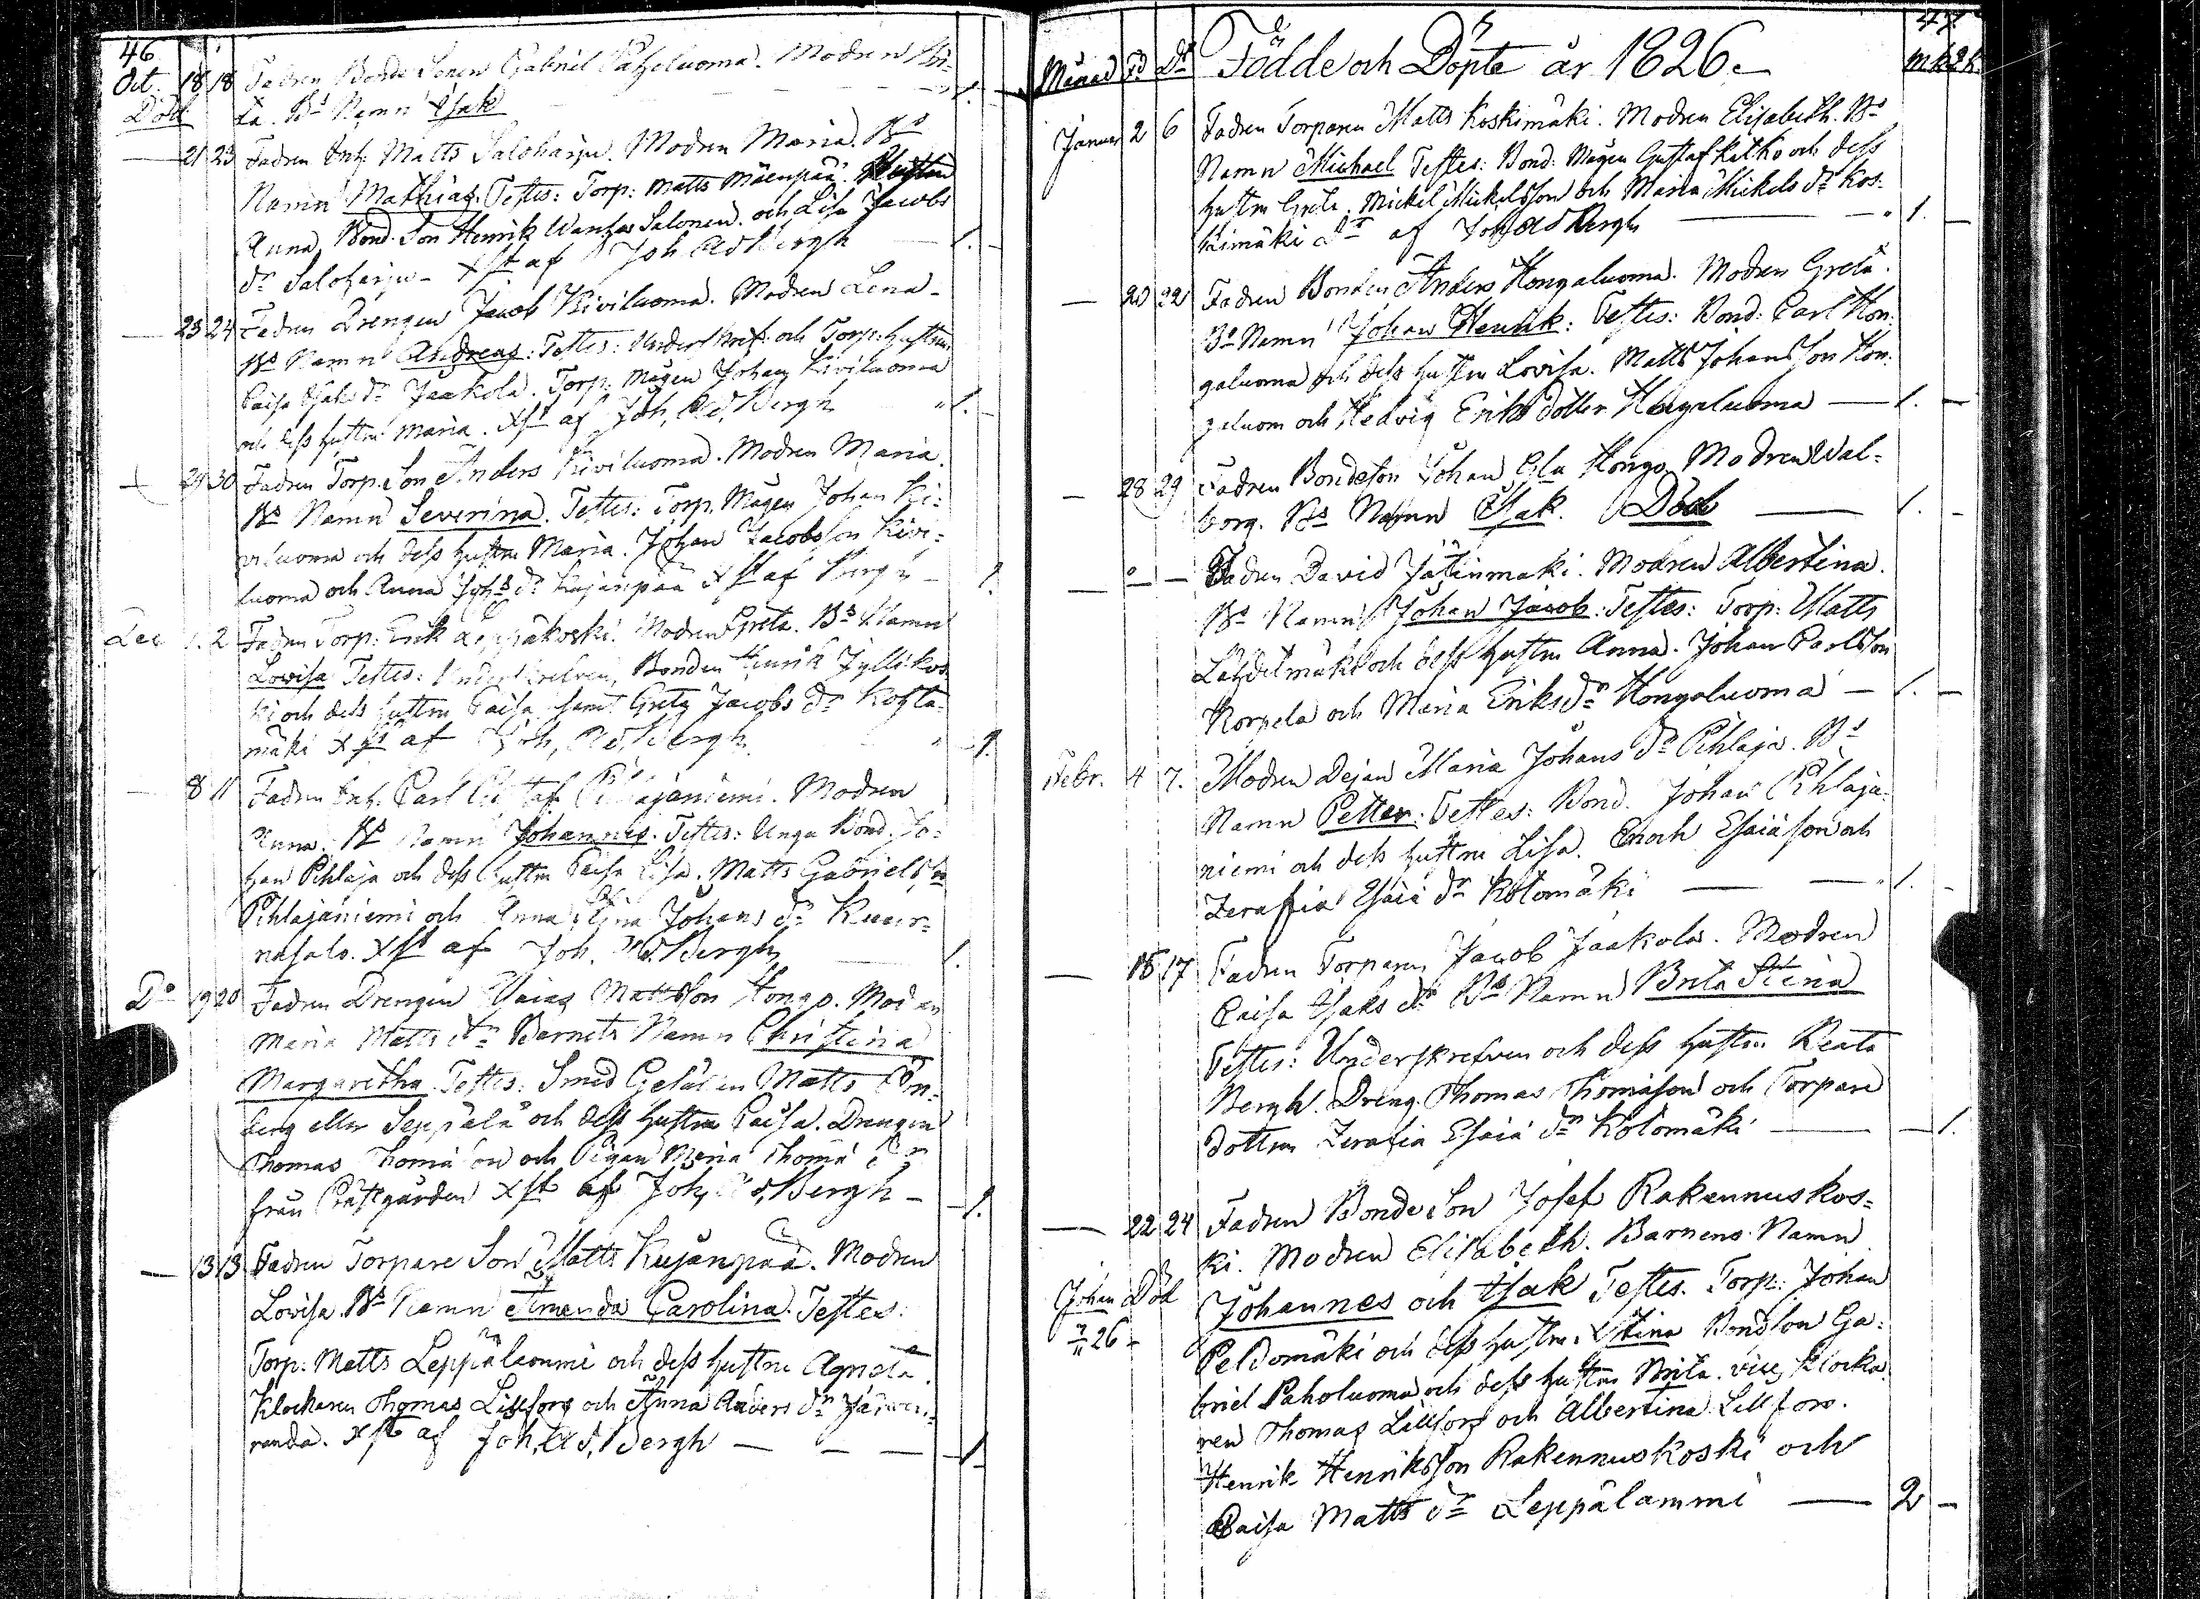 46
Oct. 18 18 Fadren Bonde Sonen Gabriel Paholuoma. Modren Bri-
Död ta. Bs Namn Isak 1.
21 23 Fadren Inh: Matts Saloharju. Modren Maria. Bs
Namn Mathias. Testes: Torp: Matts Mäenpää. Hustrun
Anna, Bond. Son Henrik Wanhas Salonen. och Lisa Jacobs
dr Saloharju - Xst af Joh. Ad Bergh 1. -
23 24 Fadren Drengen Jacob Kiviluoma. Modren Lena -
Bs Namn Andreas: Testes: Underskref: och Torp: hustrun
Caisa Isaks dr Jaakola. Torp: Mågen Johan Kiviluoma
och dess hustru Maria. Xst af Joh. Ad. Bergh 1. -
+ 29 30 Fadren Torp. Son Anders Kiviluoma. Modren Maria.
Bs Namn Severina. Testes: Torp. Mågen Johan Ki-
viluoma och dess hustru Maria. Johan Jacobsson Kivi-
luoma och Anna Johs dr Kujanpää Xst af Bergh - 1.
Dec 1. 2 Fadren Torp: Erik Leppäkoski. Modren Greta. Bs Namn
Lovisa Testes: Underskrefven, Bonden Henrik Jyllikos
ki och dess hustru Caisa samt Greta Jacobs dr Kosta-
mäki Xst af Joh. Ad Bergh 1.
8 11 Fadren Inh. Carl Gustaf Pihlajaniemi. Modren
Anna. Bs Namn Johannes. Testes: Unga Bond. Jo-
han Pihlaja och dess hustru Caisa Lisa. Matts Gabrielsson
Pihlajaniemi och Anna Stina Johans dr Kuur-
nasalo. Xst af Joh. Ad. Bergh 1.
Do 19 20 Fadren Drengen Isaias Mattsson Hongo. Modren
Maria Matts dr Barnets Namn Christina
Margaretha. Testes: Smed Gesällen Matts
berg eller Seppälä och dess hustru Caisa. Drengen
Thomas Thomasson och Pigan Maria Thoma dr
från Prästgården Xst af Joh. Ad. Bergh - 1.
13 13 Fadren Torpare Son Matts Kujanpää. Modren
Lovisa. Bs Namn Amanda Carolina. Testes:
Torp: Matts Leppäluomi och dess hustru Agneta.
Klockaren Thomas Lillfors och Anna Anders dr Järven-
randa. Xst af Joh. Ad. Bergh - - - 1.
47
Månad Fd Dt Födde och Döpte år 1826. m.k. q.k.
Januar 2 6 Fadren Torparen Matts Koskimäki. Modren Elisabeth. Bs
Namn Michael Testes: Bond: Mågen Gustaf Kitko och dess
hustru Greta. Mickel Mickelsson och Maria Mickels dr Kos-
kimäki Dr af Joh Ad Bergh 1. -
20 22 Fadren Bonden Anders Hongaluoma. Modren Greta.
Bs Namn Johan Henrik: Testes: Bond: Carl Hon-
galuoma och dess hustru Lovisa. Matts Johansson Hon-
galuom och Hedvig Eriks dotter Hongaluoma 1. -
28 29 Fadren Bondeson Johan Yla Hongo Modren Wal-
borg. Bs Namn Isak. Död 1. -
Fadren David Jätinmäki. Modren Albertina.
Bs Namn Johan Jacob: Testes: Torp: Matts
Lähdetmäki och dess hustru Anna. Johan Carlsson
Korpela och Maria Eriks dr Hongaluoma - 1. -
Febr. 4 7. Modren Dejan Maria Johans dr Pihlaja. Bs
Namn Petter: Testes: Bond. Johan Pihlaja-
niemi och dess hustru Lisa. Enoch Esaiason och
Zerafia Esaia dr Kotomäki 1. -
16 17 Fadren Torparen Jacob Jaakola. Modren
Caisa Isaks dr Bs Namn Brita Stina
Testes: Underskrefven och dess hustru Beata
Bergh. Dreng. Thomas Thomason och Torpare
dottren Zerafia Esaia dr Kotomäki 1.
22 24 Fadren Bonde Son Josef Rakennuskos-
ki. Modren Elisabeth. Barnens Namn
Johan Död Johannes och Isak Testes. Torp: Johan
26 - Peldomäki och dess hustru Stina Bondson Ga-
briel Paholuoma och dess hustru Brita. vice klocka-
ren Thomas Lillfors och Albertina Lillfors.
Henrik Henriksson Rakennuskoski och
Caisa Matts dr Leppälammi 2 -